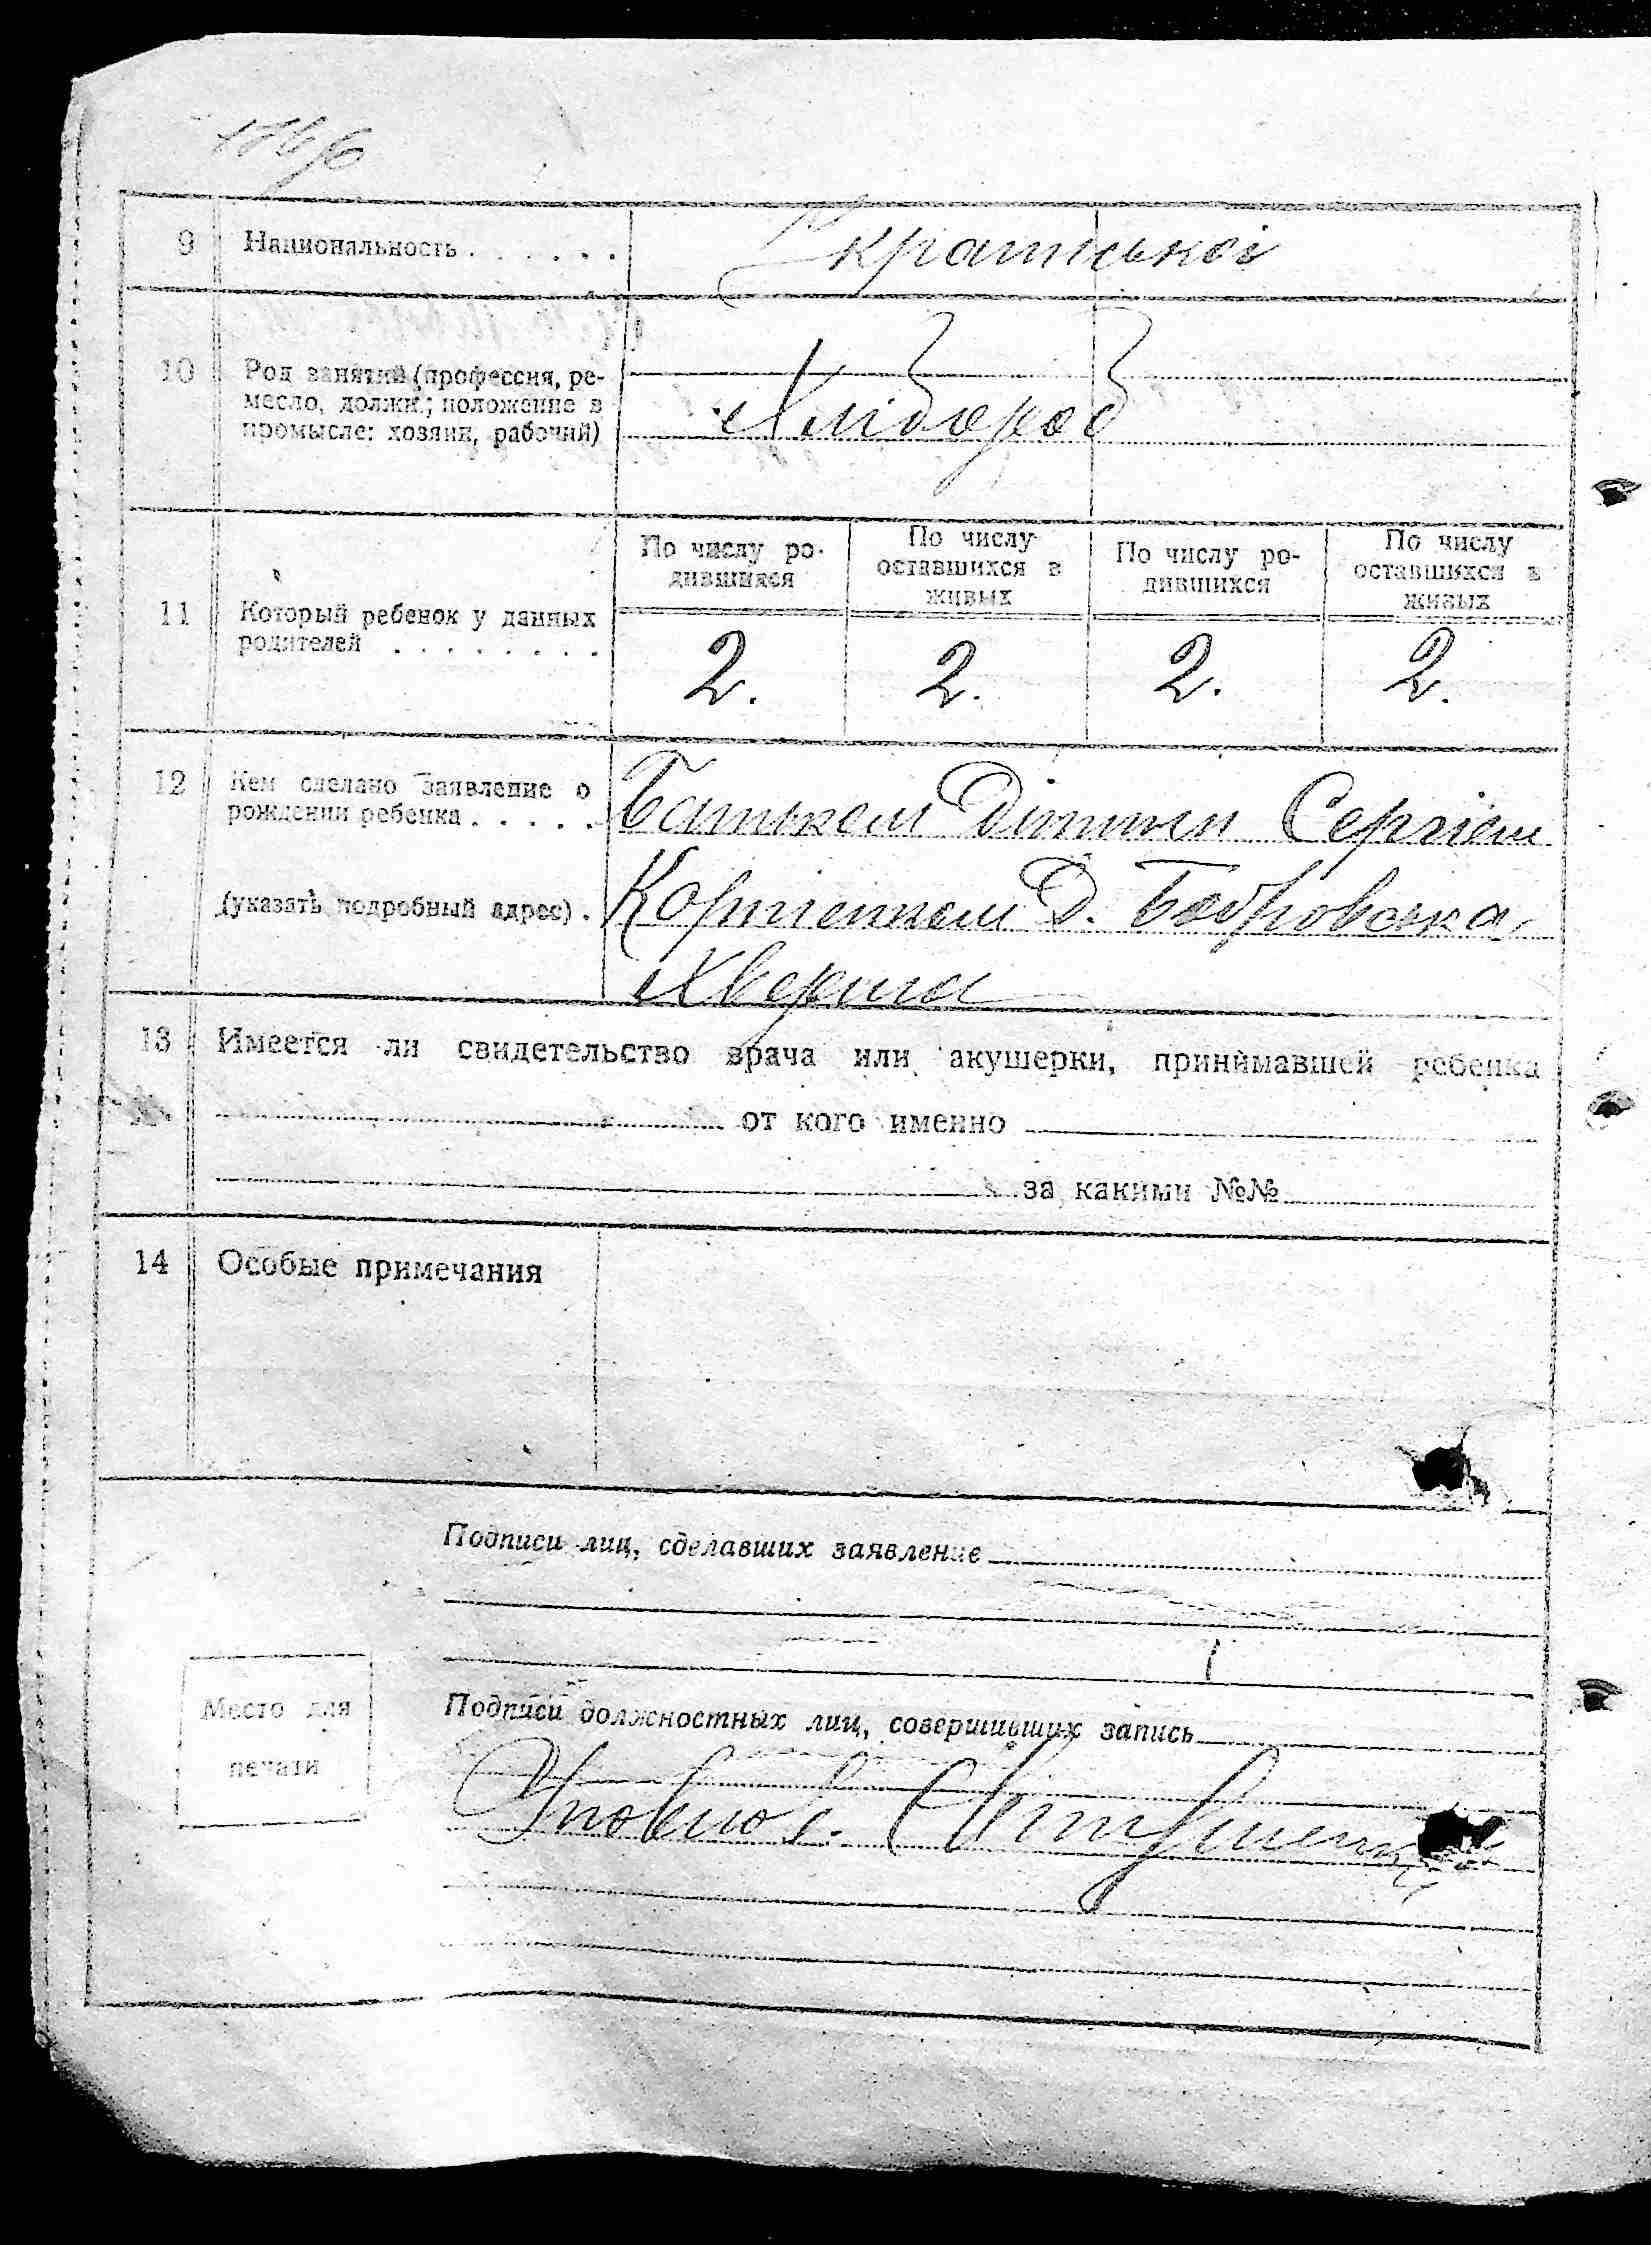 9 Национальность . . . . . . Української
10 Род занятий (профессия, ре-
месло, должн.; положение в
промысле: хозяин, рабочий)
Хлібороб
11 Который ребенок у данных
родителей . . . . . . . .
По числу ро-
дившихся
По числу
оставшихся в
живых
По числу ро-
дившихся
По числу
оставшихся в
живых
2. 2. 2. 2.
12 Кем сделано заявление о
рождении ребенка . . . . .
(указать подробный адрес) .
Батьком Сергієм
Корнієнком Д. Бобровська
13 Имеется ли свидетельство врача или акушерки, принимавшей ребенка
от кого именно
за какими №№
14 Особые примечания
Подписи лиц, сделавших заявление
Место для
печати
Подписи должностных лиц, совершивших запись